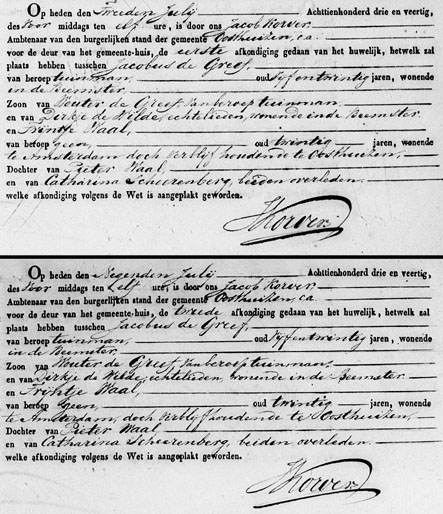 Op heden den Tweeden Julij Achttienhonderd drie en veertig,
des Voor middags ten elf ure, is door ons Jacob Korver.
Ambtenaar van den burgerlijken stand der gemeente Oosthuizen, c.a.
voor de deur van het gemeente-huis, de eerste afkondiging gedaan van het huwelijk, hetwelk zal
plaats hebben tusschen Jacobus de Greef,
van beroep tuinman, oud Vyfentwintig jaren, wonende
in de Beemster.
Zoon van Wouter de Greef. Van beroep tuinman
en van Dirkje de Wilde, echtelieden, wonende in de Beemster
en Trijntje Waal,
van beroep Geen, oud twintig jaren, wonende
te Amsterdam doch verblijf houdende te Oosthuizen,
Dochter van Pieter Waal,
en van Catharina Scheerenberg, beiden overleden.
welke afkondiging volgens de Wet is aangeplakt geworden.
JKorver.
Op heden den Negenden Julij Achttienhonderd drie en veertig,
des Voor middags ten Elf ure, is door ons Jacob Korver.
Ambtenaar van den burgerlijken stand der gemeente Oosthuizen, c.a
voor de deur van het gemeente-huis, de tweede afkondiging gedaan van het huwelijk, hetwelk zal
plaats hebben tusschen Jacobus de Greef,
van beroep tuinman, oud Vyfentwintig jaren, wonende
in de Beemster,
Zoon van Wouter de Greef Van beroep tuinman,
en van Dirkje de Wilde, echtelieden, wonende in de Beemster
en Trijntje Waal,
van beroep Geen, oud twintig jaren, wonende
te Amsterdam, doch verblijfhoudende te Oosthuizen,
Dochter van Pieter Waal
en van Catharina Scheerenberg, beiden overleden.
welke afkondiging volgens de Wet is aangeplakt geworden.
JKorver.